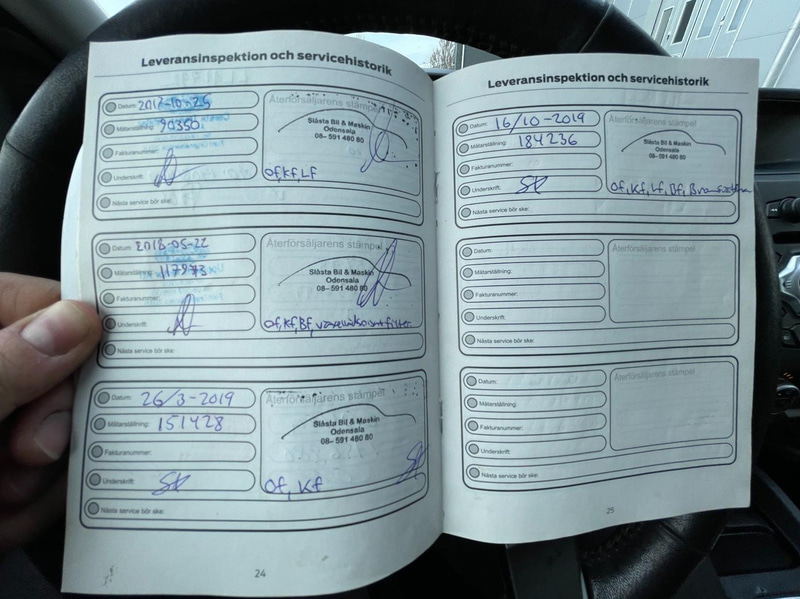 Leveransinspektion och servicehistorik
Datum: 2017-10-25
Mätarställning: 90350
Fakturanummer:
Underskrift:
Nästa service bör ske:
Återförsäljarens stämpel
Slåsta Bil & Maskin
Odensala
08- 591 480 80
Of, Kf, Lf
Datum: 2018-05-22
Mätarställning: 117973
Fakturanummer:
Underskrift:
Nästa service bör ske:
Återförsäljarens stämpel
Slåsta Bil & Maskin
Odensala
08- 591 480 80
Of, Kf, Bf,
Datum: 26/3-2019
Mätarställning: 151428
Fakturanummer:
Underskrift:
Nästa service bör ske:
Återförsäljarens stämpel
Slåsta Bil & Maskin
Odensala
08- 591 480 80
Of, Kf
24
Leveransinspektion och servicehistorik
Datum: 16/10-2019
Mätarställning: 184236
Fakturanummer:
Underskrift:
Nästa service bör ske:
Återförsäljarens stämpel
Slåsta Bil & Maskin
Odensala
08- 591 480 80
Of, Kf, Lf, Bf,
Datum:
Mätarställning:
Fakturanummer:
Underskrift:
Nästa service bör ske:
Återförsäljarens stämpel
Datum:
Mätarställning:
Fakturanummer:
Underskrift:
Nästa service bör ske:
Återförsäljarens stämpel
25